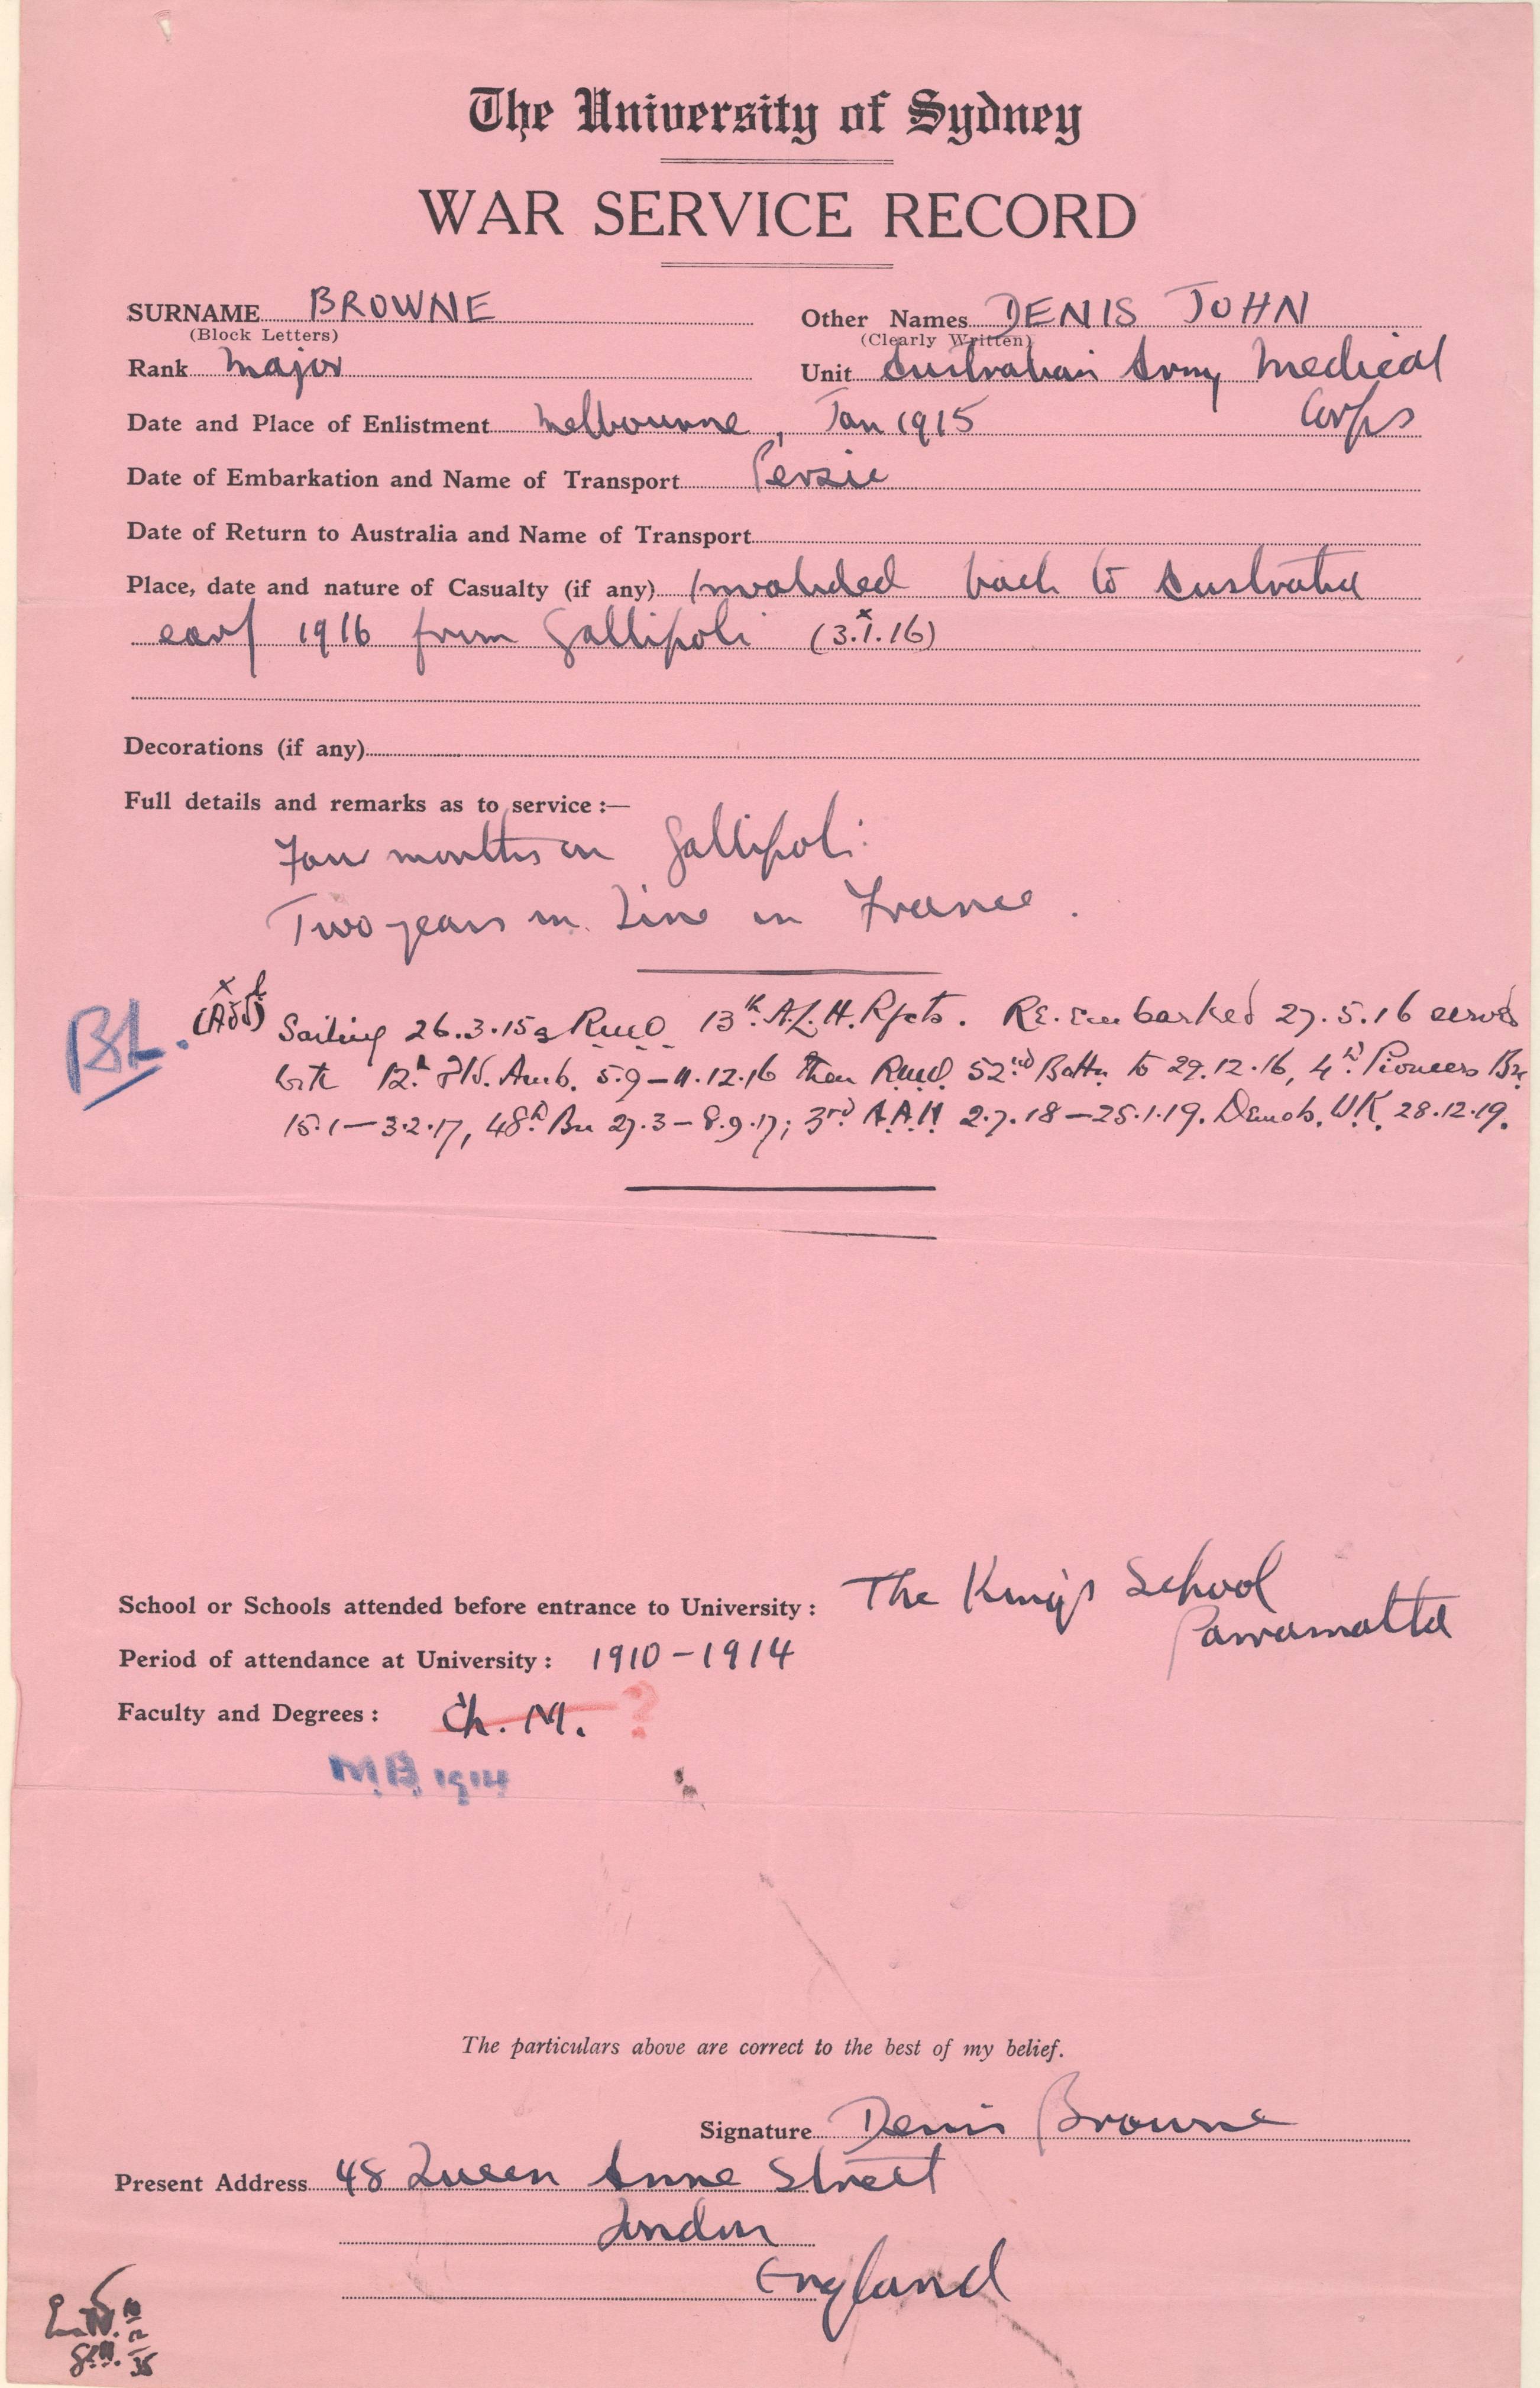 The University of Sydney
WAR SERVICE RECORD
SURNAME BROWNE Other Names DENIS JOHN
(Block Letters) (Clearly Written)
Rank Major Unit Australian Army Medical
Corps
Date and Place of Enlistment Melbourne, Jan 1915
Date of Embarkation and Name of Transport Persic
Date of Return to Australia and Name of Transport
Place, date and nature of Casualty (if any) Invalided back to Australia
early 1916 from Gallipoli (3.1.16)
x
Decorations (if any)
Full details and remarks as to service :—
Four months on Gallipoli.
Two years in Line in France.
BL. x (Add) Sailing 26.3.15 a R.M.O. 13th A.L.H. Rfcts. Re-embarked 27.5.16 served
with 12th Fld. Amb. 5.9-11.12.16 then R.M.O. 52nd Battn to 29.12.16, 4th Pioneers Bn
15.1-3.2.17, 48th Bn 27.3-8.9.17; 3rd A.A.H 2.7.18-25.1.19. Demob. U.K. 28.12.19.
School or Schools attended before entrance to University : The Kings School
Parramatta
Period of attendance at University : 1910-1914
Faculty and Degrees : Ch. M. ?
M.B. 1914
The particulars above are correct to the best of my belief.
Signature Denis Browne
Present Address 48 Queen Anne Street
London
England